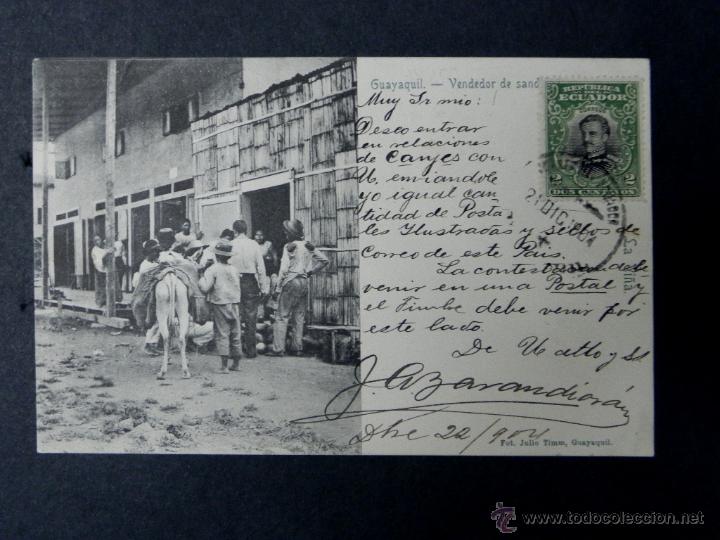 Guayaquil. — Vendedor de sand
REPUBLICA
DEL
ECUADOR
2 2
DOS CENTAVOS
21 DIC 1904
Muy Sr mio:
Deseo entrar
en relaciones
de Canjes con
U. enviandole
yo igual can
tidad de Posta
les Ilustradas y sellos de
Correo de este Pais.
La contestacion debe
venir en una Postal y
el Timbre debe venir por
este lado.
De U atto y SS
J. A. Barandiarán
Dbre 22/904
Fot. Julio Timm, Guayaquil.
www.todocoleccion.net